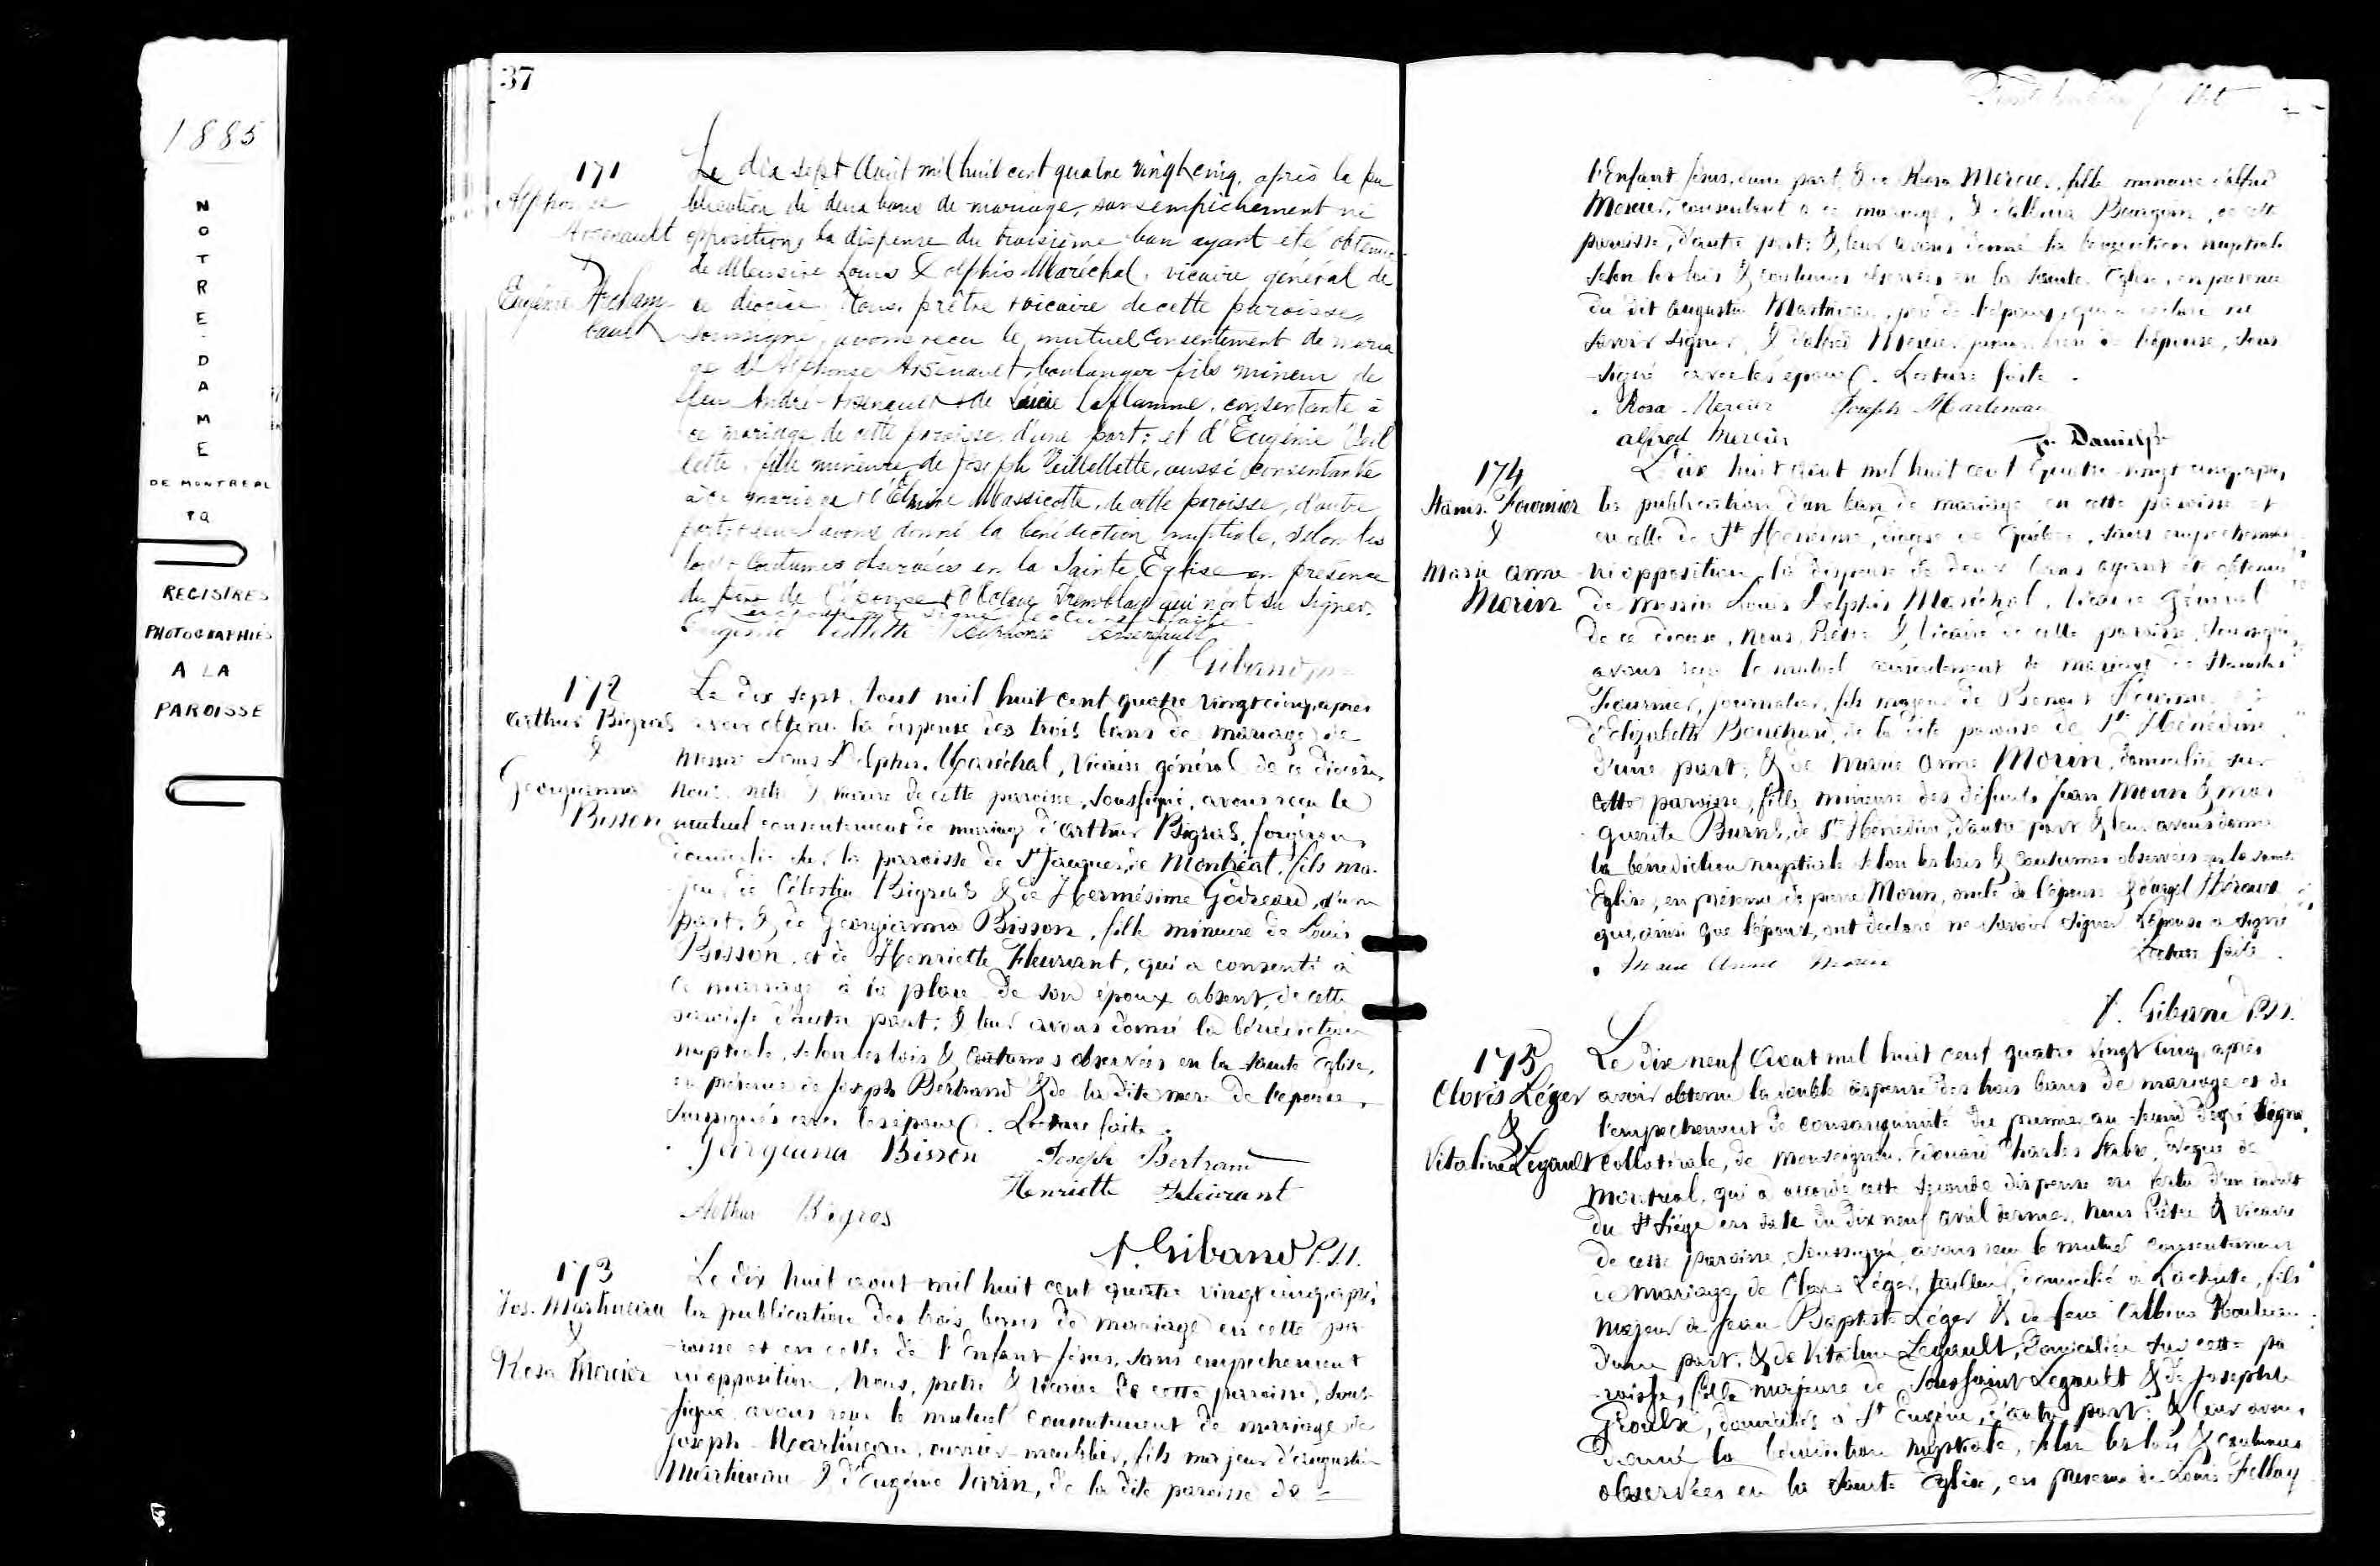 1885
NOTRE-DAME
DE MONTREAL
P.Q
REGISTRES
PHOTOGRAPHIÉS
A LA
PAROISSE
37
171
Alphonse
Arsenault
&
Eugénie Archam-
bault
Le dix sept Août mil huit cent quatre vingt cinq, après la pu
blication de deux bans de mariage, sans empêchement ni
opposition, la dispense du troisième ban ayant été obtenue
de Messire Louis Delphis Maréchal, vicaire général de
ce diocèse, Nous, prêtre & vicaire de cette paroisse,
soussigné, avons reçu le mutuel consentement de maria
ge d'Alphonse Arsenault, boulanger fils mineur de
feu André Arsenault & de Lucie Laflamme, consentante à
ce mariage, de cette paroisse, d'une part; et d'Eugénie Veil
lette, fille mineure de Joseph Veillette, aussi consentante
à ce mariage & d' Massicotte, de cette paroisse, d'autre
part, & leur avons donné la bénédiction nuptiale, selon les
lois & coutumes observées en la Sainte Église en présence
du père de l'épouse & Octave Tremblay qui n'ont su signer.
signé lecture faite
Eugénie Veillette Alphonse Arsenault
Gibaud ptre
172
Arthur Bigras
&
Georgianna
Bisson
Le dix sept Aout mil huit cent quatre vingt cinq, après
avoir obtenu la dispense des trois bans de mariage de
Messire Louis Delphis Maréchal, Vicaire général de ce diocèse,
Nous, prêtre & vicaire de cette paroisse, soussigné, avons reçu le
mutuel consentement de mariage d'Arthur Bigras, forgeron,
domicilié sur la paroisse de St Jacques, de Montréal, fils ma-
jeur de Célestin Bigras & de Hermésime Godreau, d'une
part; & de Georgianna Bisson, fille mineure de Louis
Bisson, et de Henriette Fleurant, qui a consenti à
ce mariage à la place de son époux absent, de cette
paroisse d'autre part; & leur avons donné la bénédiction
nuptiale, selon les lois & coutumes observées en la Sainte Eglise,
en présence de Joseph Bertrand & de la dite mère de l'épouse,
soussignés avec les époux. Lecture faite.
Gorgiana Bisson Joseph Bertrand
Henriette Fleurant
Arthur Bigras
Gibaud P.S.S.
173
Jos. Martineau
&
Rosa Mercier
Le dix huit aout mil huit cent quatre vingt cinq, après
la publication des trois bans de mariage en cette pa-
roisse et en celle de l'Enfant Jésus, sans empêchement
ni opposition, Nous, prêtre & vicaire de cette paroisse, sous-
signé, avons reçu le mutuel consentement de mariage de
Joseph Martineau, ouvrier-meublier, fils majeur d'Augustin
Martineau & d'Eugénie , de la dite paroisse de
l'Enfant Jésus, d'une part, & de Rosa Mercier, fille mineure d'Alfred
Mercier, consentant à ce mariage, & d' , de cette
paroisse, d'autre part; & leur avons donné la bénédiction nuptiale
selon les lois & coutumes observées en la Sainte Eglise, en présence
du dit Augustin Martineau, père de l'époux, qui a déclaré ne
savoir signer, & d'Alfred Mercier, père de l'épouse, sous-
signé avec les époux. Lecture faite.
Rosa Mercier Joseph Martineau
alfred Mercier
174
Stanis. Fournier
&
Marie Anne
Morin
Le dix huit Aout mil huit cent quatre vingt cinq, après
la publication d'un ban de mariage en cette paroisse et
en celle de Ste Hénédine, diocèse de Québec, sans empêchement
ni opposition, la dispense de deux bans ayant été obtenue
de Messire Louis Delphis Maréchal, Vicaire Général
de ce diocèse, Nous, Prêtre & Vicaire de cette paroisse, soussigné,
avons reçu le mutuel consentement de mariage de Stanislas
Fournier, journalier, fils majeur de Benoit Fournier &
d'Elizabeth Bouchard, de la dite paroisse de Ste Hénédine
d'une part; & de Marie Anne Morin, domiciliée sur
cette paroisse, fille mineure des défunts Jean Morin & Mar
guerite Burns, de Ste Hénédine, d'autre part & leur avons donné
la bénédiction nuptiale selon les lois & coutumes observées en la sainte
Eglise, en présence de Pierre Morin, oncle de l'épouse &
qui, ainsi que l'époux, ont déclaré ne savoir signer. L'épouse a signé
Lecture faite.
Marie Anne Morin
Gibaud P.S.S.
175
Clovis Léger
&
Vitaline Legault
Le dix neuf Aout mil huit cent quatre vingt cinq, après
avoir obtenu la double dispense des trois bans de mariage et de
l'empêchement de consanguinité du premier au second degré ligne
collatérale, de Monseigneur Edouard Charles Fabre, évêque de
Montréal, qui a accordé cette seconde dispense en vertu d'un indult
du St Siège en date du dix neuf avril dernier, Nous Prêtre & vicaire
de cette paroisse, soussigné, avons reçu le mutuel consentement
de mariage de Clovis Léger, tailleur, domicilié à Lachute, fils
majeur de Jean Baptiste Léger & de feue
d'une part; & de Vitaline Legault, domiciliée sur cette pa
roisse, fille majeure de Toussaint Legault & de Josephte
Groulx, domiciliés à St Eugène, d'autre part; & leur avons
donné la bénédiction nuptiale, selon les lois & coutumes
observées en la Sainte Eglise, en présence de Louis